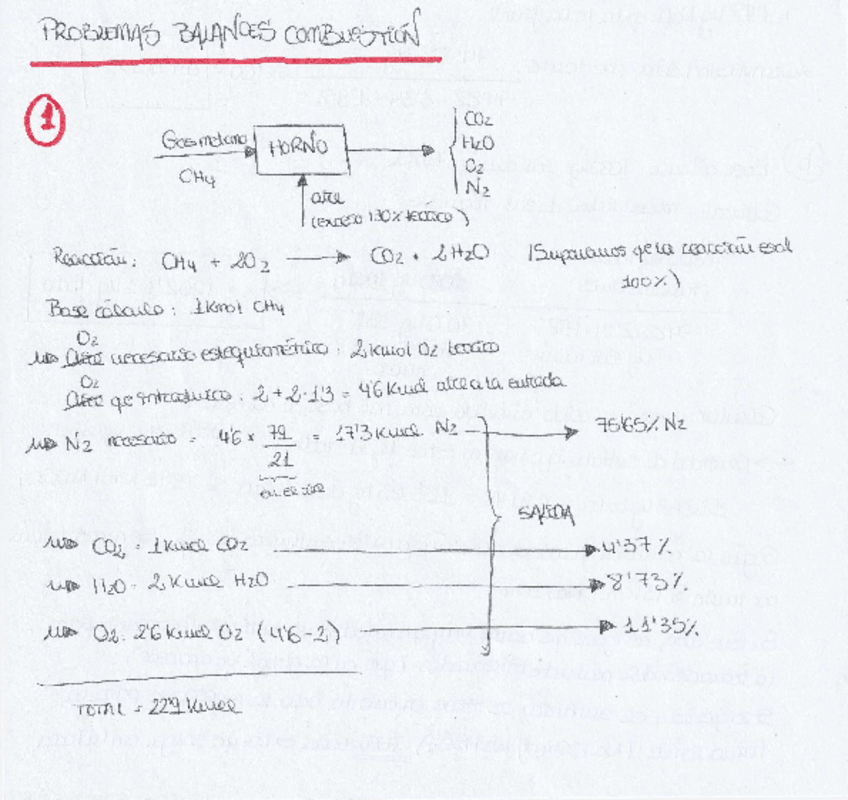 PROBLEMAS BALANCES COMBUSTIÓN
1
Gas metano
CH4
HORNO
CO2
H2O
O2
N2
aire
(exceso 130% teórico)
Reacción: CH4 + 2O2 → CO2 + 2H2O (Suponemos q la reacción es al 100%)
Base cálculo: 1 Kmol CH4
O2
necesario estequiométrico: 2 Kmol O2 teórico
O2
q introduzco: 2 + 2·1'3 = 4'6 Kmol aire a la entrada
N2 necesario = 4'6 × 79/21 = 17'3 Kmol N2 → 75'65% N2
en el aire
SALIDA
CO2 = 1 Kmol CO2 → 4'37%
H2O = 2 Kmol H2O → 8'73%
O2: 2'6 Kmol O2 (4'6-2) → 11'35%
TOTAL = 22'9 Kmol